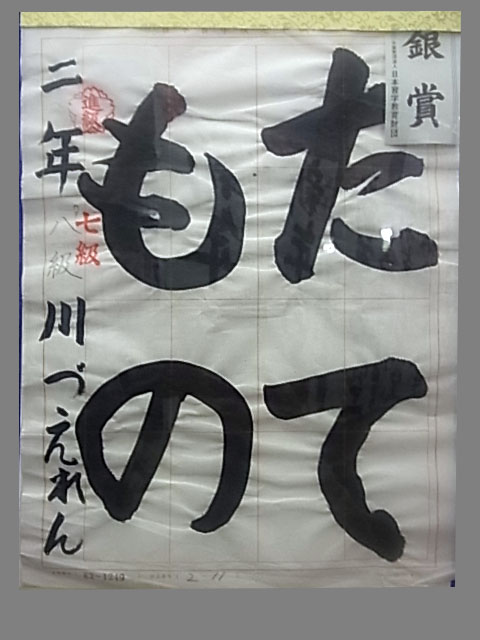 銀賞
日本習字教育財団
たて
もの
進級
七級
二年 八級 川づえれん
2-11